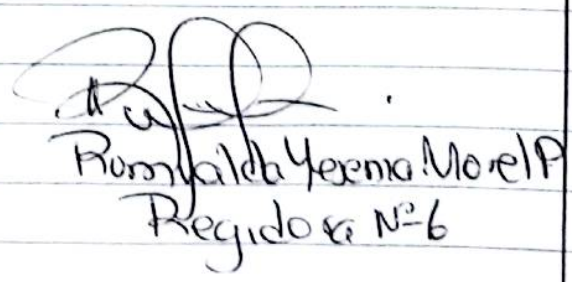 Romualda Yesenia Morel P
Regidora Nº6